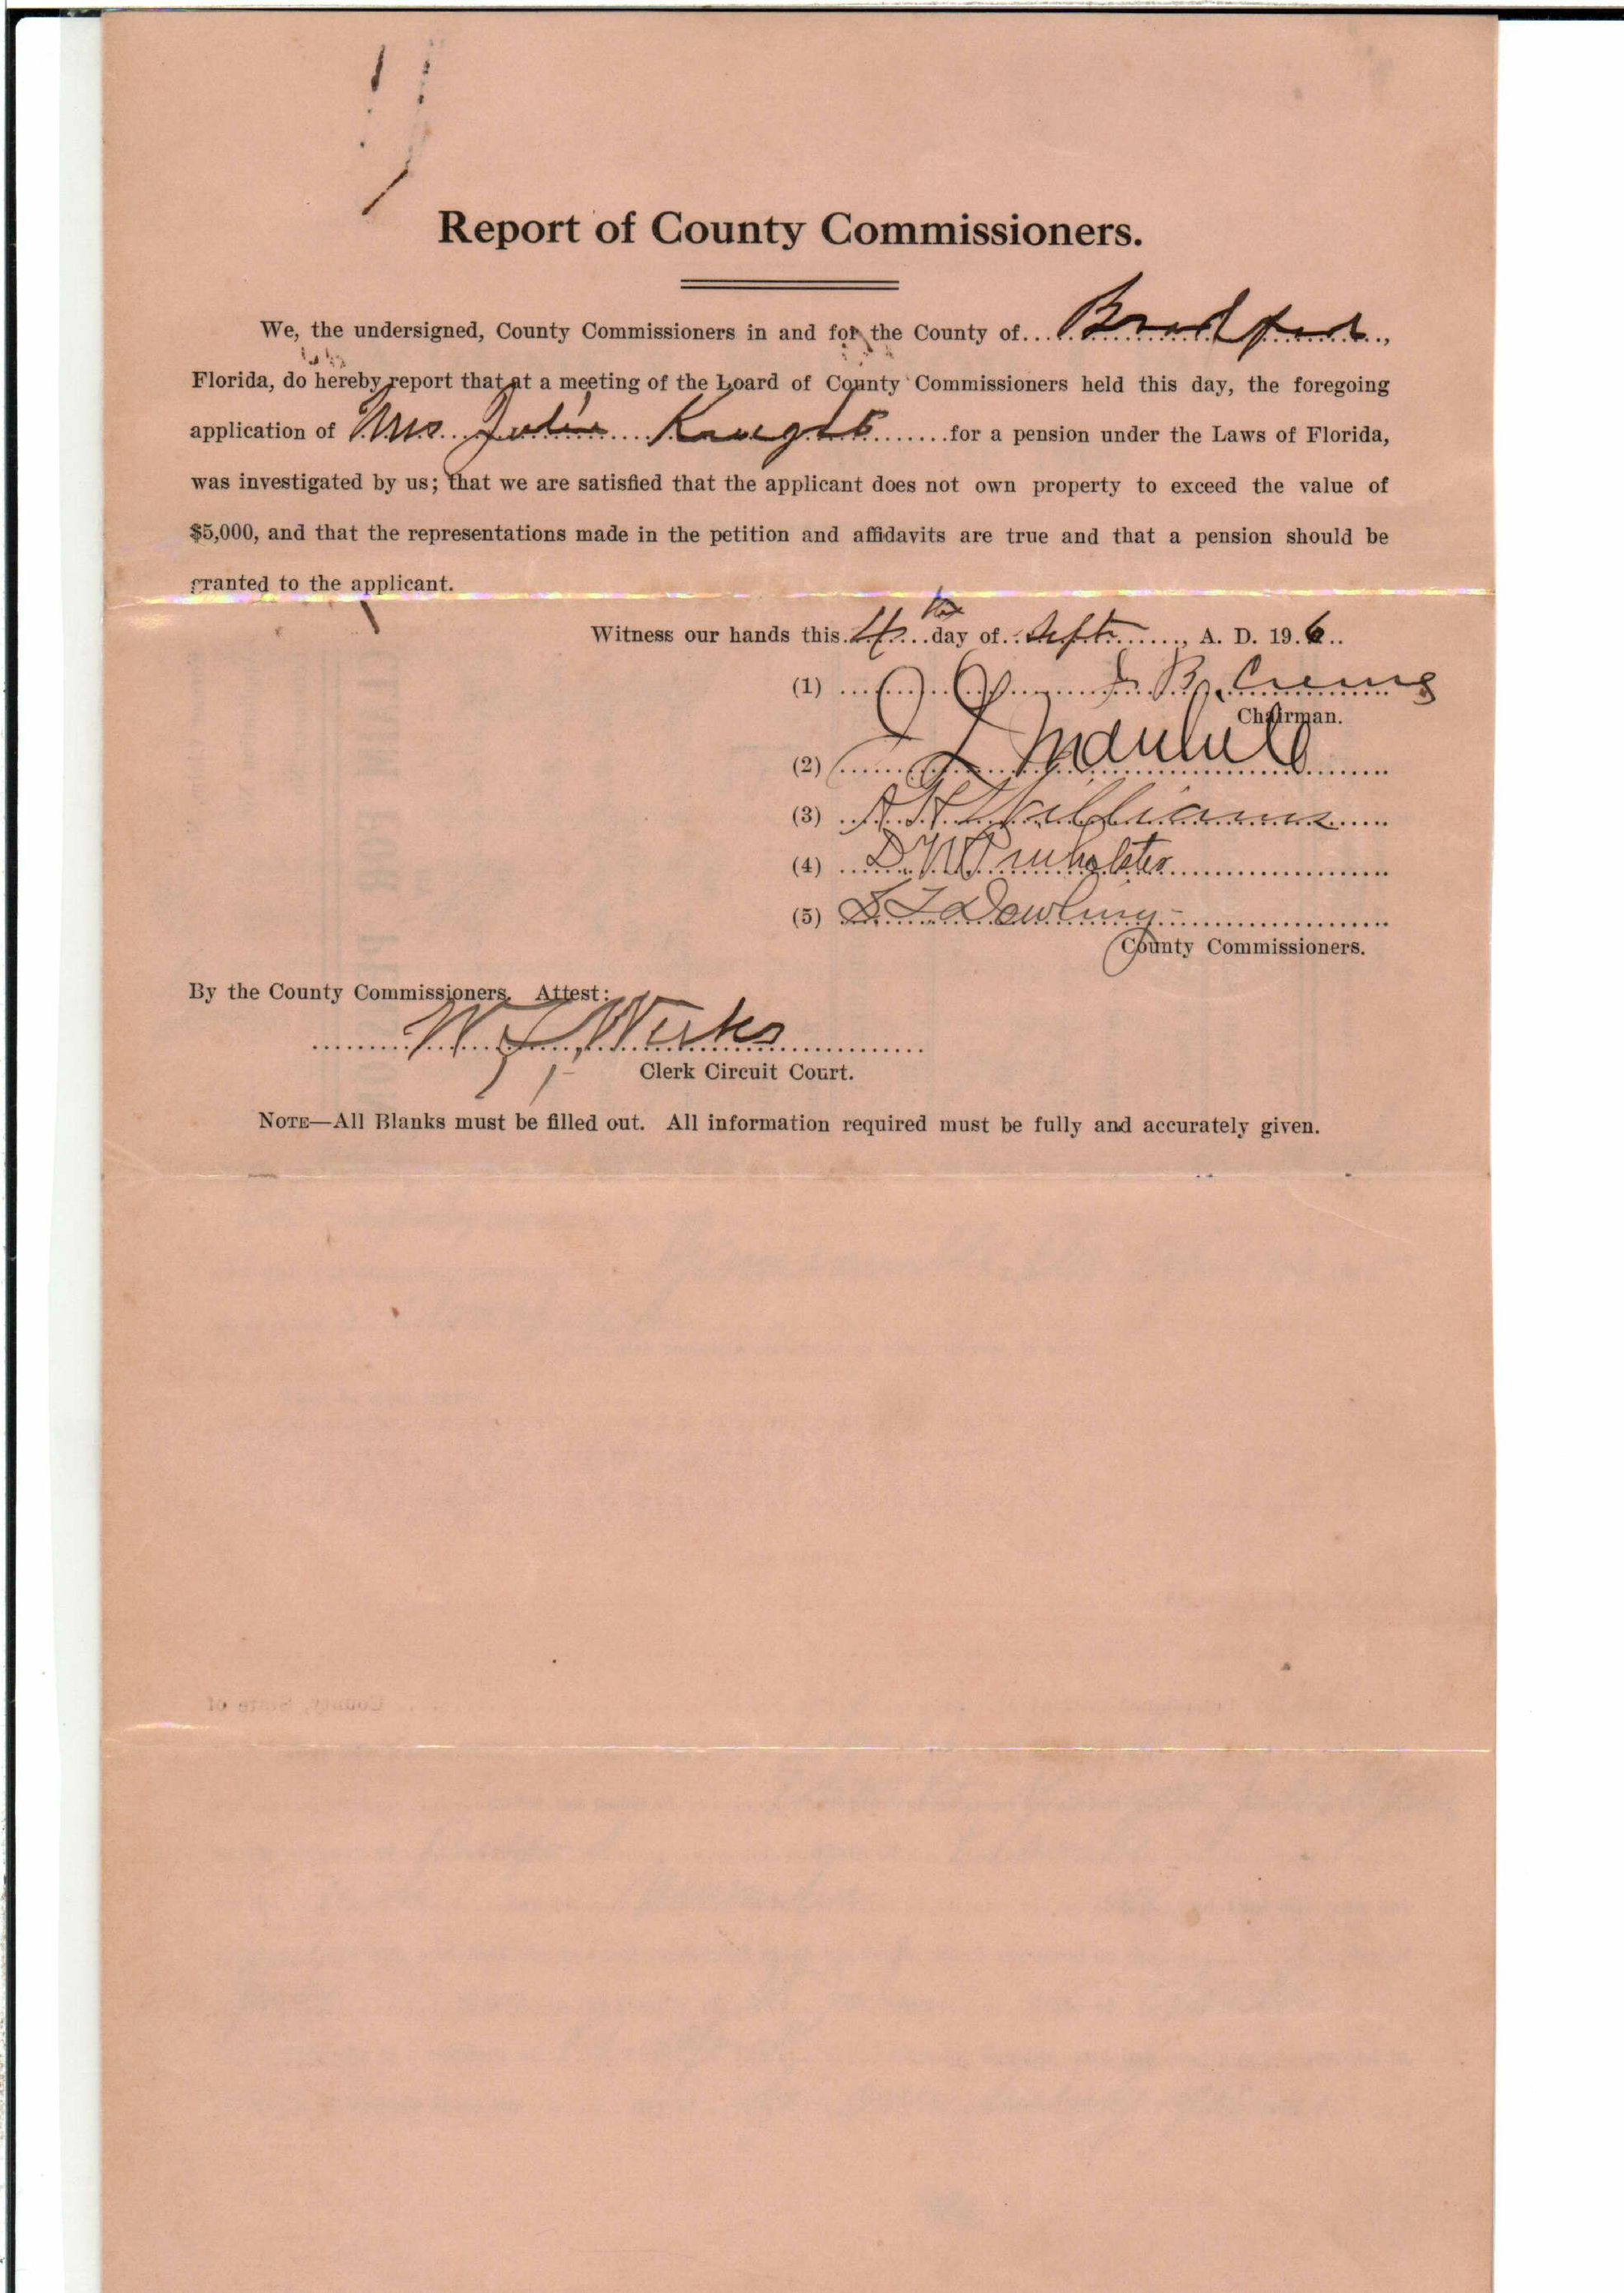 Report of County Commissioners.
We, the undersigned, County Commissioners in and for the County of... Bradford.,
Florida, do hereby report that at a meeting of the Loard of County Commissioners held this day, the foregoing
application of Mrs Julia Knight for a pension under the Laws of Florida,
was investigated by us; that we are satisfied that the applicant does not own property to exceed the value of
$5,000, and that the representations made in the petition and affidavits are true and that a pension should be
granted to the applicant.
Witness our hands this 4th day of Sept, A. D. 19 6
(1) J B
Chairman.
(2)
(3) A H Williams
(4) D W
(5) Dowling
County Commissioners.
By the County Commissioners. Attest:
W F Weeks
Clerk Circuit Court.
NOTE—All Blanks must be filled out. All information required must be fully and accurately given.